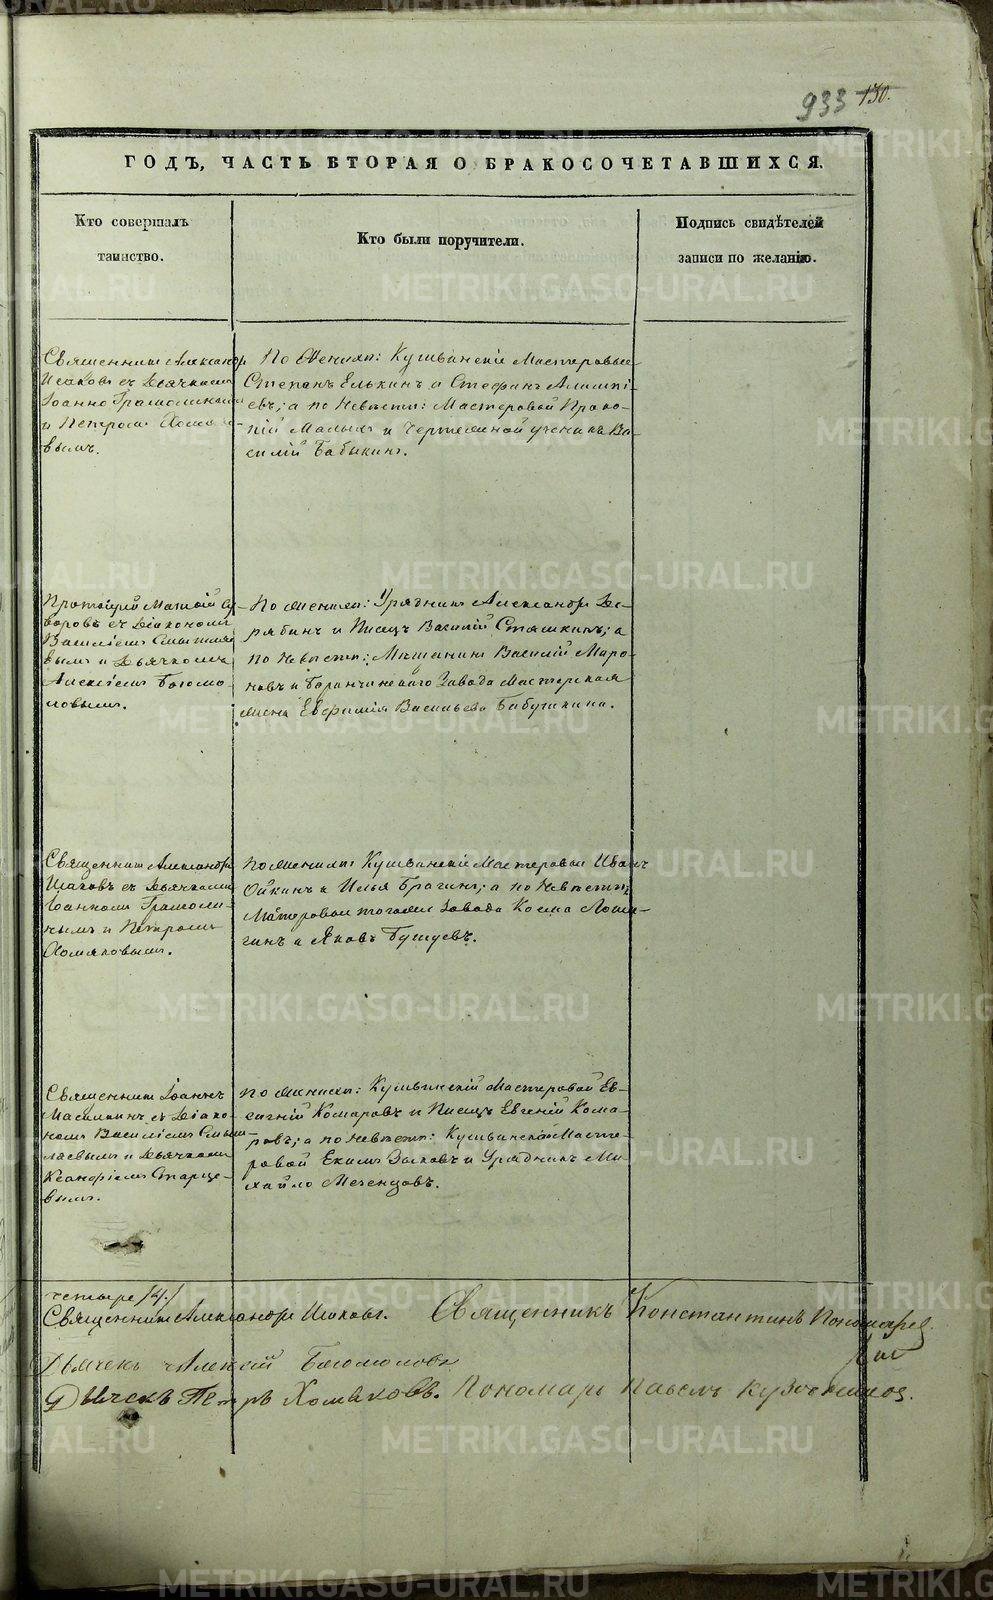 933 130.
ГОДЪ, ЧАСТЬ ВТОРАЯ О БРАКОСОЧЕТАВШИХСЯ.
Кто совершалъ
таинство.
Кто были поручители.
Подпись свидѣтелей
записи по желанію.
Священникъ Александръ
Исаковъ съ Дьячками
Іоанно
и Петромъ Хомяко-
вымъ.
По Женихѣ: Кушвинскіе Мастеровые
Степанъ Елькинъ и Стефанъ
евъ; а по Невѣстѣ: Мастеровой Проко-
пій Малыхъ и Чертежной ученикъ Ва-
силій Бабыкинъ.
Протоіерей Матѳій
воровъ съ Діакономъ
Василіемъ Смышляе
вымъ и Дьячкомъ
Алексіемъ Богомо-
ловымъ.
По женихѣ: Урядникъ Александръ Де-
рябинъ и Писецъ Василій Сташкинъ; а
по Невѣстѣ: Мѣщанинъ Василій Маро-
новъ и Баранчинскаго Завода Мастерская
жена Евфимія Васильева Бабушкина.
Священникъ Александръ
Исаковъ съ Дьячками
Іоанномъ Грамоли-
нымъ и Петромъ
Хомяковымъ.
по женихѣ Кушвинскіе Мастеровые Иванъ
Ойкинъ и Илья Брагинъ; а по Невѣстѣ;
Мастеровые тогоже Завода Косма
гинъ и Яковъ Бушуевъ.
Священникъ Іоаннъ
съ Діако-
номъ Василіемъ Смыш-
ляевымъ и Дьячкомъ
Ксанфіемъ Старце-
вымъ.
по женихѣ: Кушвинскій Мастеровой Ев-
сигній Комаровъ и Писецъ Евгеній Кома-
ровъ; а по невѣстѣ: Кушвинской Масте-
ровой Екимъ Зыковъ и Урядникъ Ми-
хайло Мехенцовъ.
четыре /4./
Священникъ Александръ Исаковъ. Священникъ Константинъ Пономарев
Дьячекъ Алексій Богомоловъ
Дьячекъ Петръ Хомяковъ. Пономарь Павелъ